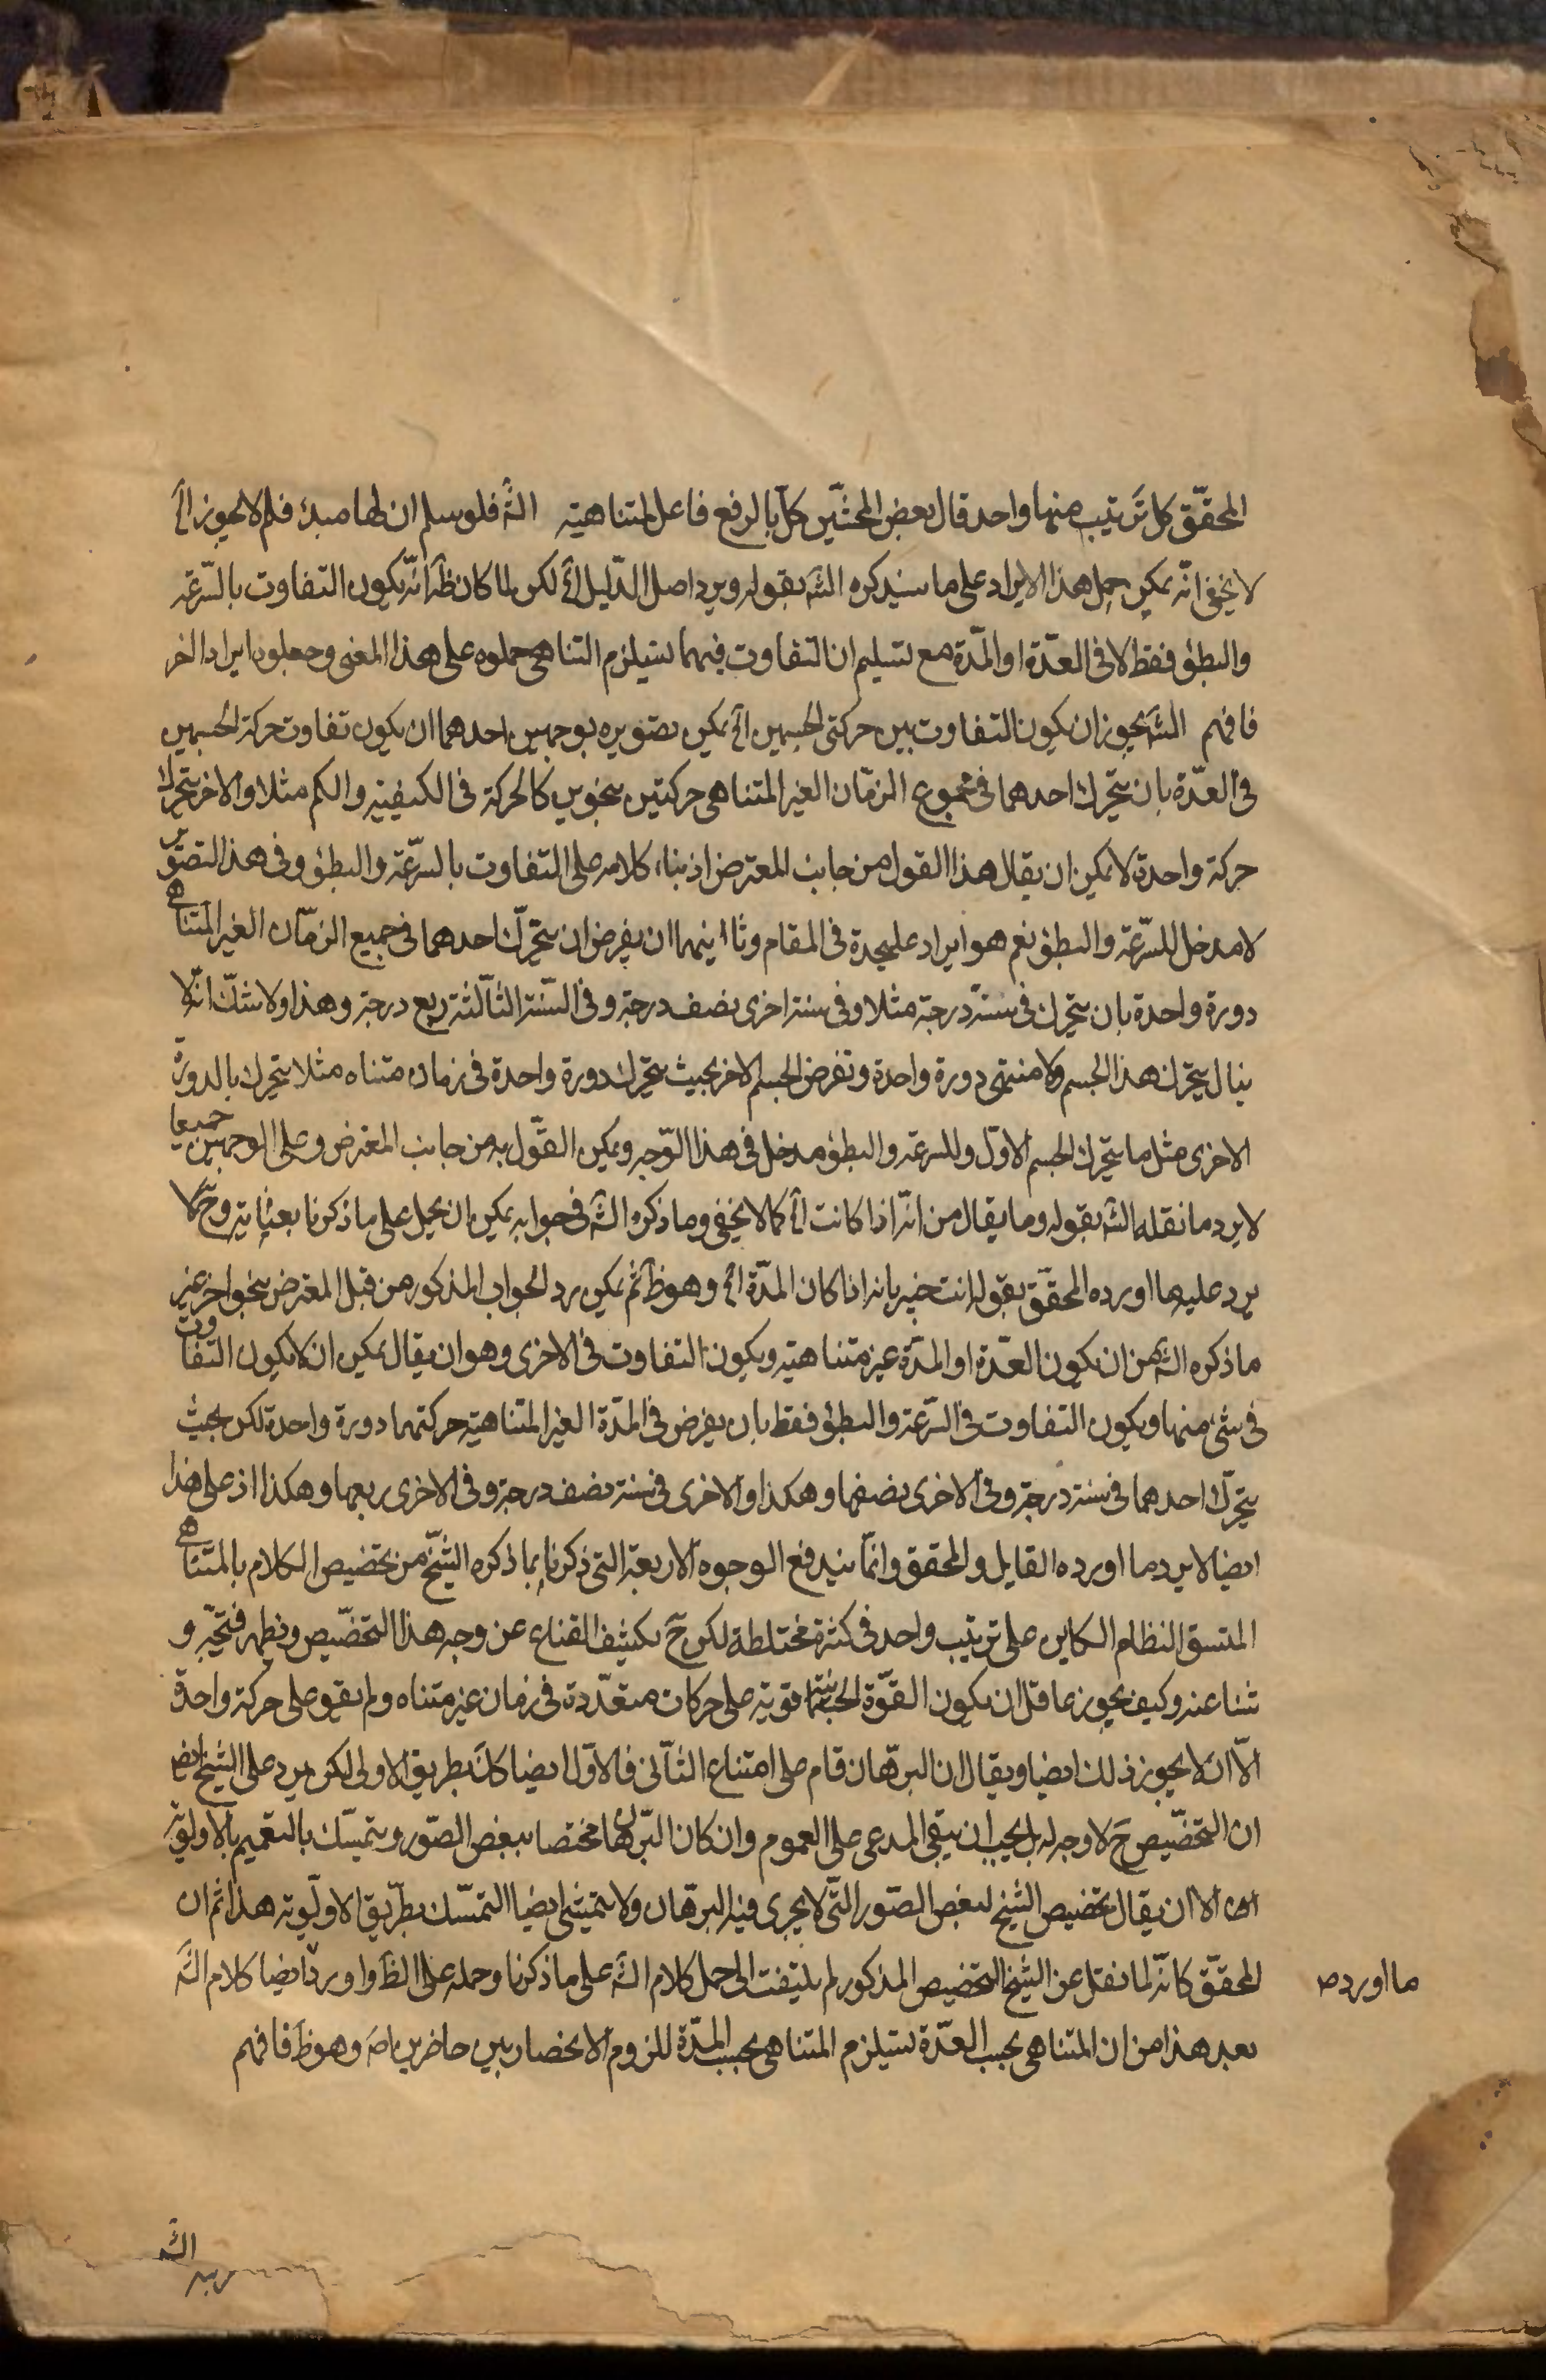 المحقّق كل ترتيب منها واحد قال بعض المحشّين كلّ بالرفع فاعل المتناهية الشّ فلو سلم ان لها مبدء فلم لا يجوز الخ
لا يخفى انّه يمكن حمل هذا الايراد على ما سنذكره الشّ بقوله ويرد اصل الدّليل الخ لكن لما كان ظ انّه يكون التفاوت بالسّرعة
والبطؤ فقط لا فى العدّة او المدّة مع تسليم ان التفاوت فيهما يستلزم التناهى حملوه على هذا المعنى وجعلوه ايرادا اخر
فافهم الشّ يجوز ان يكون التفاوت بين حركتى الجسمين الخ يمكن تصويره بوجهين احدهما ان يكون تفاوت حركة الجسمين
فى العدّة بان يتحرّك احدهما فى مجموع الزمّان الغير المتناهى حركتين بنحوين كالحركة فى الكيفيّة والكم مثلا والاخر يتحرك
حركة واحدة لا يمكن ان يقال هذا القول من جانب المعترض اذ بناء كلامه على التفاوت بالسّرعة والبطؤ وفى هذا التصوّر
لا مدخل للسّرعة والبطؤ نعم هو ايراد عليحدة فى المقام وثا انيهما ان يفرض ان يتحرّك احدهما فى جميع الزمّان الغير المتناهى
دورة واحدة بان يتحرّك فى سنة درجة مثلا وفى سنة اخرى نصف درجة وفى السّنة الثّالثة ربع درجة وهذا ولا شكّ انّه لا
يزال يتحرّك هذا الجسم ولا منتهى دورة واحدة وتفرض الجسم الاخر بحيث يتحرك دورة واحدة فى زمان متناه مثلا يتحرك بالدورة
الاخرى مثل ما يتحرك الجسم الاوّل وللسرعة والبطؤ مدخل فى هذا الوّجه ويمكن القوّل به من جانب المعترض وعلى الوجهين جميعا
لا يرد ما نقله الشّ بقوله وما يقال من انّه اذا كانت الخ كما لا يخفى وما ذكره الشّ فى جوابه يمكن ان يحمل على ما ذكرنا بعناية وحّ كما
يرد عليه ما اورده المحقّق بقوله انت خبير بانه اذا كان المدّة الخ وهو ظ ثم يمكن رد الجواب المذكور من قبل المعترض بنحو اخر غير
ما ذكره الشّ من ان يكون العدّة او المدّة غير متناهية ويكون التفاوت فى الاخرى وهو ان يقال يمكن ان لا يكون التفاوت
فى شئ منها ويكون التفاوت فى السّرعة والبطؤ فقط بان يفرض فى المدّة الغير المتناهية حركتهما دورة واحدة لكن بحيث
يتحرّك احدهما فى سنة درجة وفى الاخرى نصفها وهكذا والاخرى فى سنة نصف درجة وفى الاخرى ربعها وهكذا اذ على هذا
ايضا لا يرد ما اورده القايل والمحقق وانمّا يندفع الوجوه الاربعة التى ذكرنا بما ذكره الشّيخ من تخصيص الكلام بالمتناهى
المتسق النظام الكاين على ترتيب واحد فى كثرة مختلطة لكن حّ يكشف القناع عن وجه هذا التخصّيص ويظهر فتحّه و
شناعنه وكيف يجوز عاقل ان يكون القوّة الجسمانية قوية على حركات متعدّدة فى زمان غير متناه ولم يقو على حركة واحدة
الاّ ان لا يجوز ذلك ايضا ويقال ان البرهّان قام على امتناع الثّانى فالاوّل ايضا كان بطريق الاولى لكن يرد على الشيخ ايض
ان التخصّيص حّ لا وجه له بل يجب ان يبقى المدعى على العموم وان كان البرّهان مختصا ببعض الصّور ويتمسّك بالتعميم بالاولوية
الاّ ان يقال تخصيص الشيخ لبعض الصّور التّى لا يجرى فيه البرهّان ولا يتمشى ايضا التمسّك بطرّيق الاولّوية هذا ثم ان
المحقّق كانّه لما نقل عن الشيخ التخصيص المذكور لم يلتفت الى حمل كلام الشّ على ما ذكرنا وحمله على الظ واورد ايضا كلام الشّ
ما اورده
بعد هذا من ان المتناهى بحسب العدّة يستلزم المتناهى بحسب المدّة للزوم الانحصار بين حاضرين اه وهو ظ فافهم
الشّ